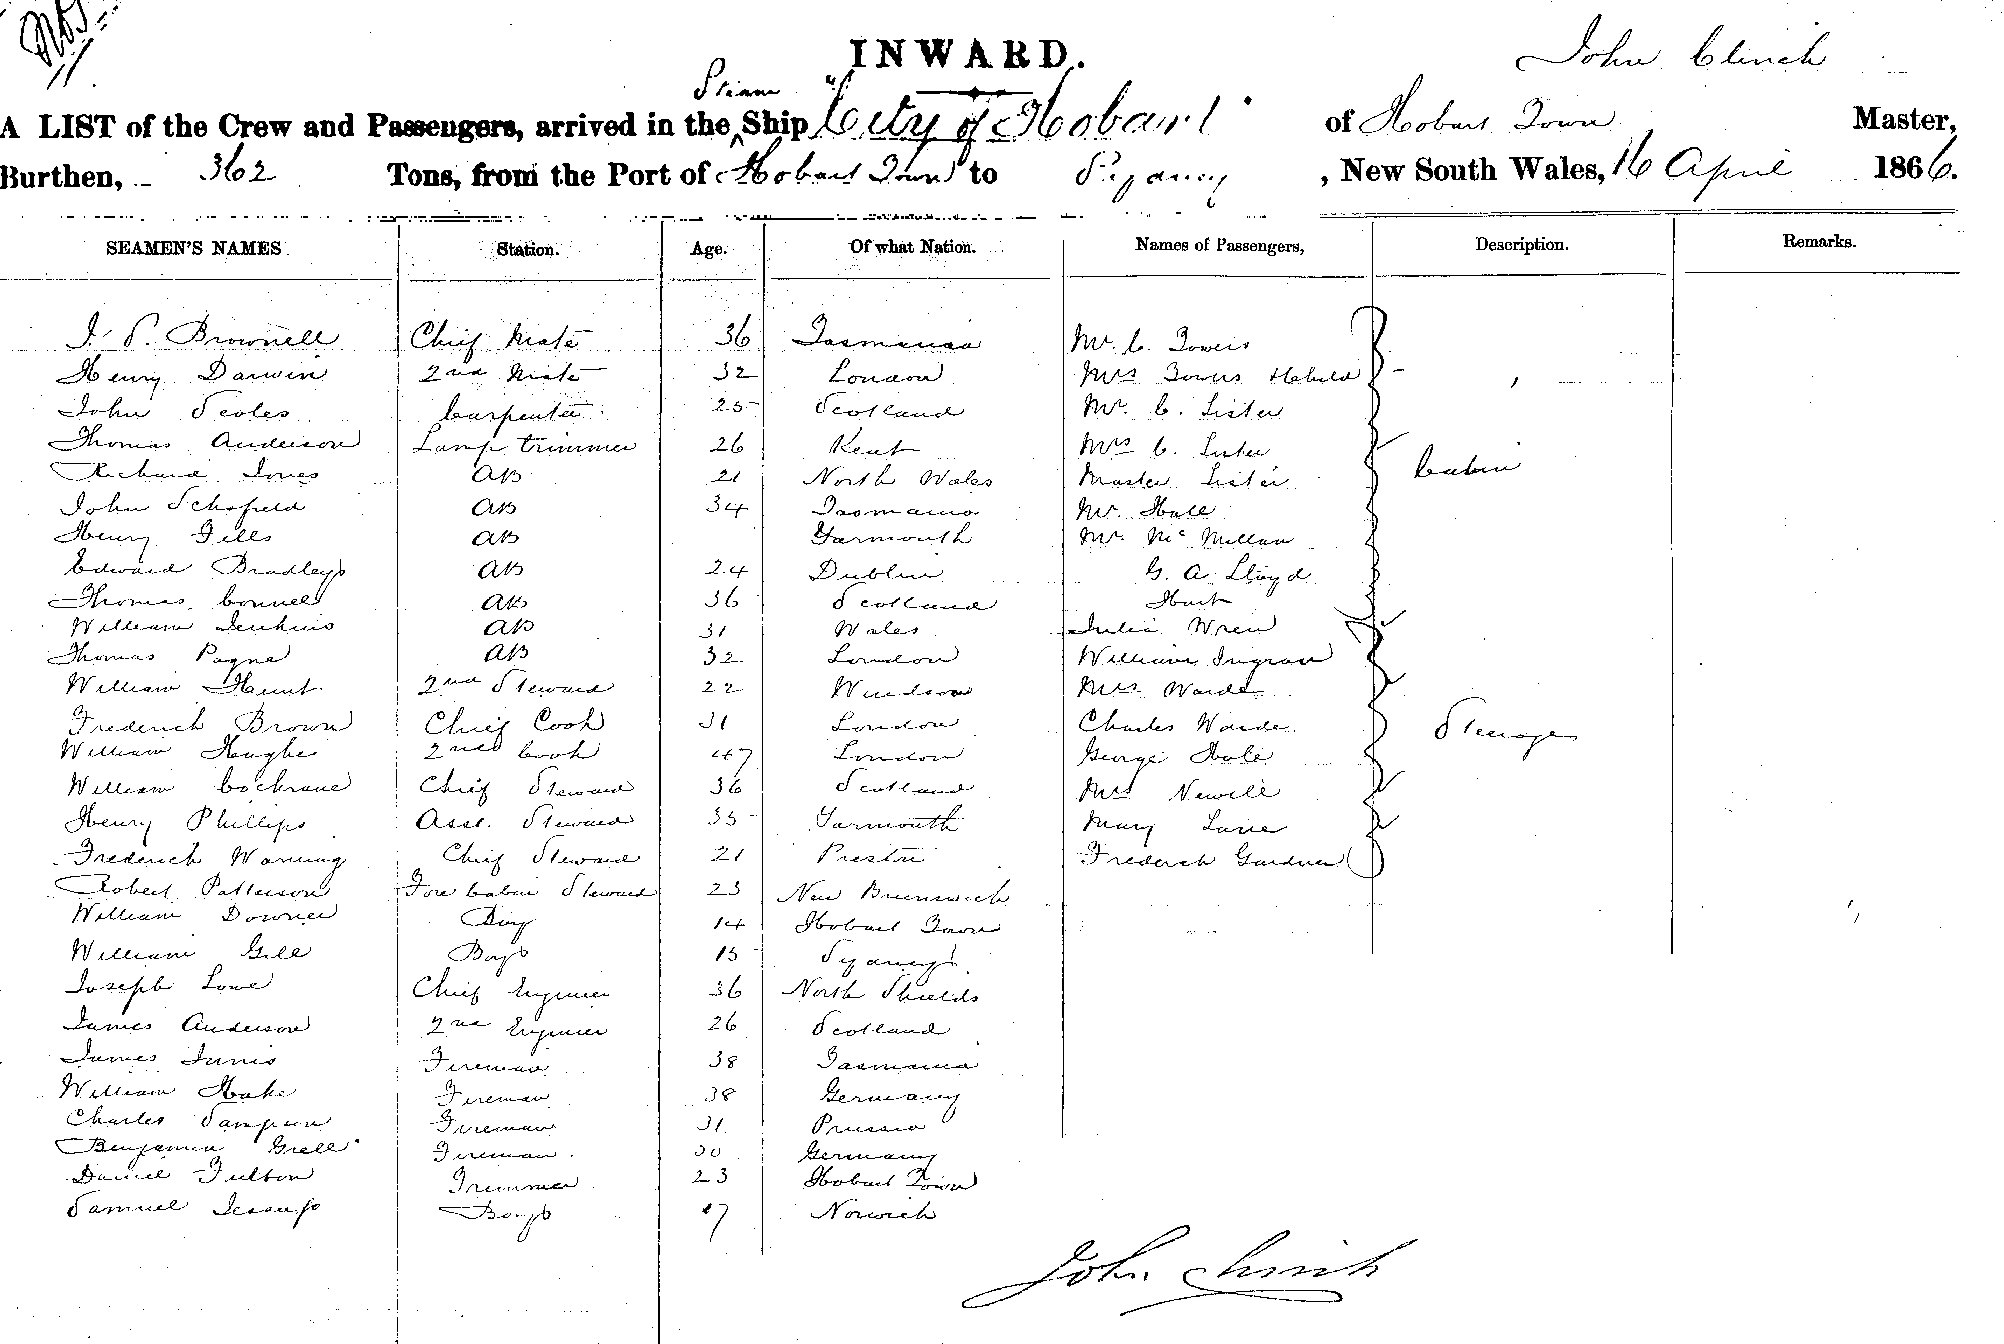 INWARD.
John Clinch
Steam
A LIST of the Crew and Passengers, arrived in the Ship "City of Hobart" of Hobart Town Master,
Burthen, 362 Tons, from the Port of Hobart Town to Sydney, New South Wales, 16 April 1866.
SEAMEN'S NAMES Station. Age. Of what Nation. Names of Passengers, Description. Remarks.
Brownell Chief Mate 36 Tasmania Mr. C. Towers
Henry Darwin 2nd Mate 32 London Mrs Towers &child
John Scoles Carpenter 25 Scotland Mr. C. Lister
Thomas Anderson Lamp trimmer 26 Kent Mrs C. Lister Cabin
Richard Jones AB 21 North Wales Master Lister
John Schofield AB 34 Tasmania Mr. Hall
Henry AB Yarmouth Mr. McMillan
Edward Bradley AB 24 Dublin G. A. Lloyd
Thomas Connell AB 36 Scotland Hart
William Jenkins AB 31 Wales Julia Wren
Thomas Payne AB 32 London William Ingram
William Hunt 2nd Steward 22 Windsor Mrs Warde
Frederick Brown Chief Cook 31 London Charles Warde Steerage
William Hughes 2nd Cook 47 London George Hale
William Cochrane Chief Steward 36 Scotland Mrs Newell
Henry Phillips Asst. Steward 35 Yarmouth Mary Lane
Frederick Warning Chief Steward 21 Preston Frederick Gardner
Robert Patterson Fore Cabin Steward 23 New Brunswick
William Downer Boy 14 Hobart Town
William Gill Boy 15 Sydney
Joseph Lowe Chief Engineer 36 North Shields
James Anderson 2nd Engineer 26 Scotland
James Innis Fireman 38 Tasmania
William Hake Fireman 38 Germany
Charles Sampson Fireman 31 Prussia
Benjamin Grell Fireman 30 Germany
Daniel Fulton Trimmer 23 Hobart Town
Samuel Jessup Boy 17 Norwich
John Clinch